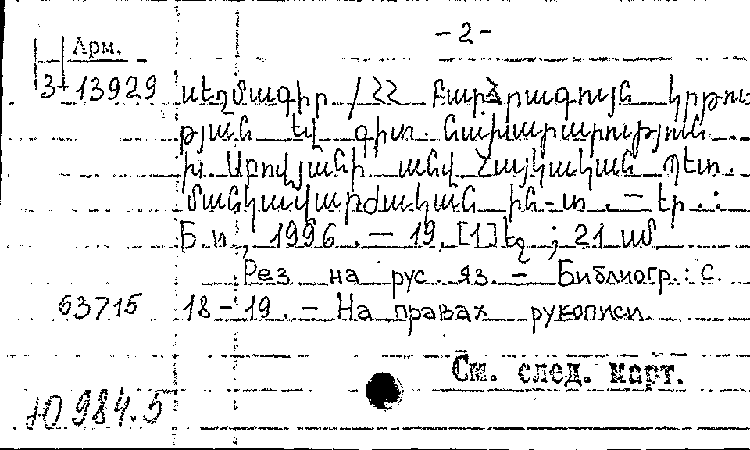 -2-
Арм.
3-13929 սեղմագիր / ՀՀ Բարձրագույն կրթու
թյան եվ գիտ. նախարարություն.
Խ. Աբովյանի անվ Հայկական պետ.
մանկավարժական ին-տ. — Եր.:
Բ. ի, 1996. — 19, [1] էջ ; 21 սմ
Рез на рус. яз. — Библиогр.: с.
63715 18-19. — На правах рукописи.
См. след. карт.
Ю 984.5